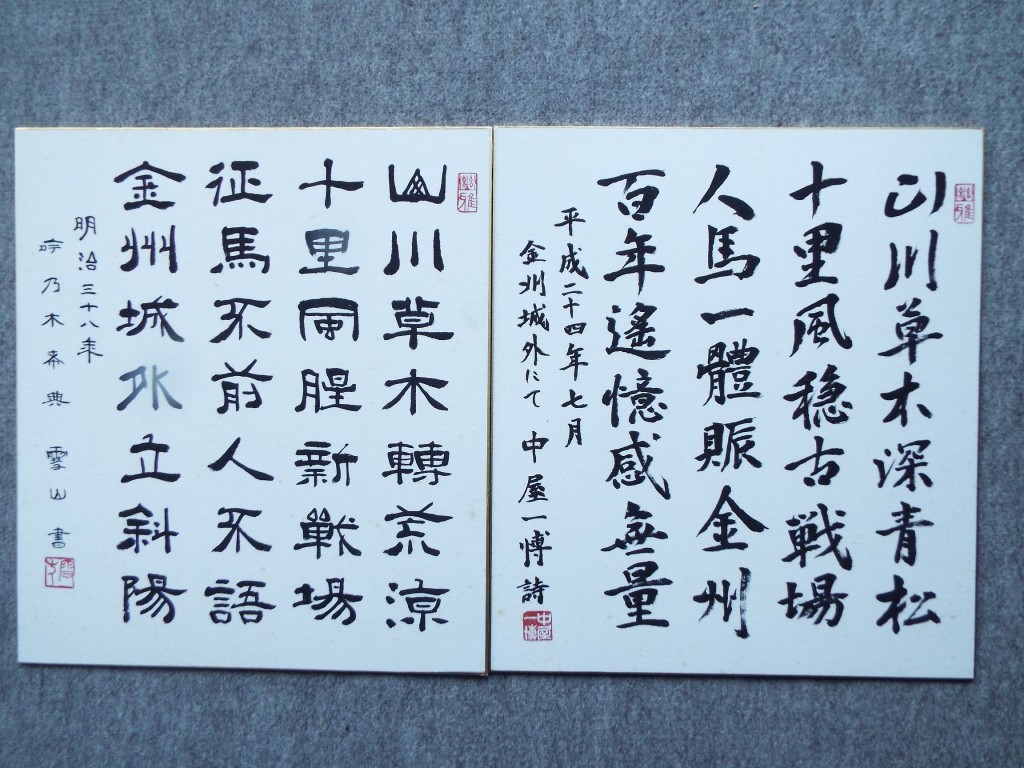 山川草木深青松
十里風穏古戦場
人馬一體賑金州
百年遙憶感無量
平成二十四年七月
金州城外にて 中屋一博詩
中屋一博
山川草木轉荒涼
十里風腥新戦場
征馬不前人不語
金州城外立斜陽
明治三十八年
乃木希典 雪山書